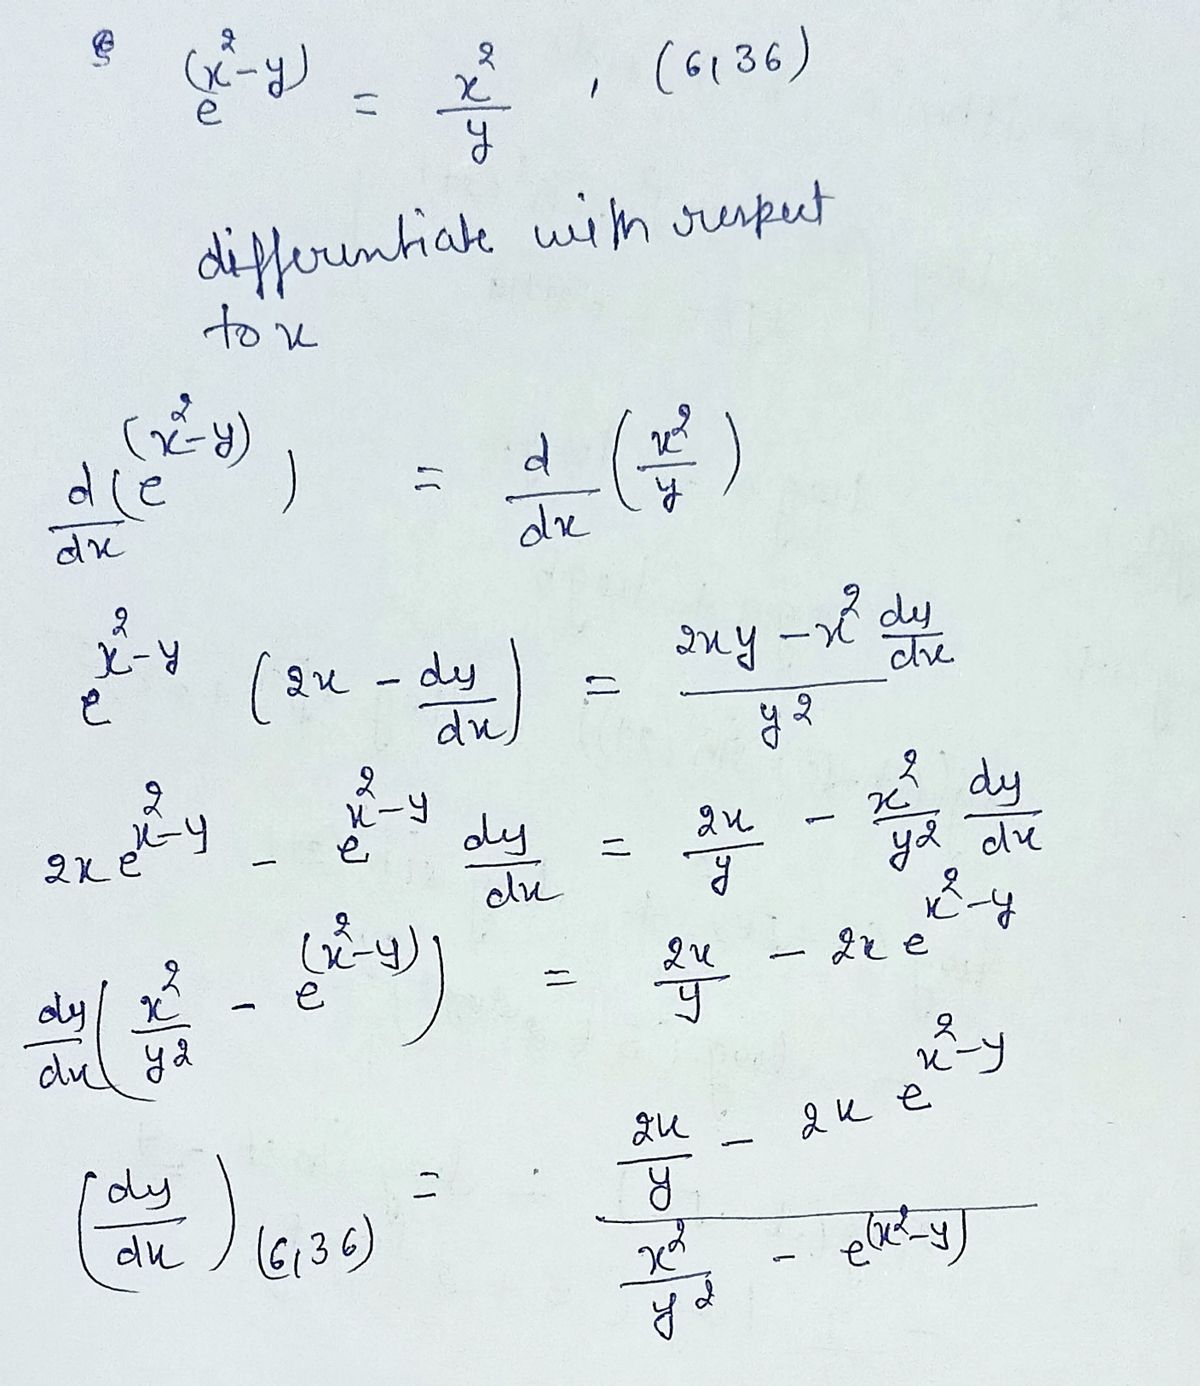 e^(x²-y) = x²/y , (6,36)
differentiate with respect
to x
d/dx (e^(x²-y)) = d/dx (x²/y)
e^x²-y (2x - dy/dx) = 2xy - x² dy/dx / y²
2x e^x²-y - e^x²-y dy/dx = 2x/y - x²/y² dy/dx
dy/dx (x²/y² - e^(x²-y)) = 2x/y - 2x e^x²-y
(dy/dx)(6,36) = 2x/y - 2x e^x²-y / x²/y² - e^(x²-y)